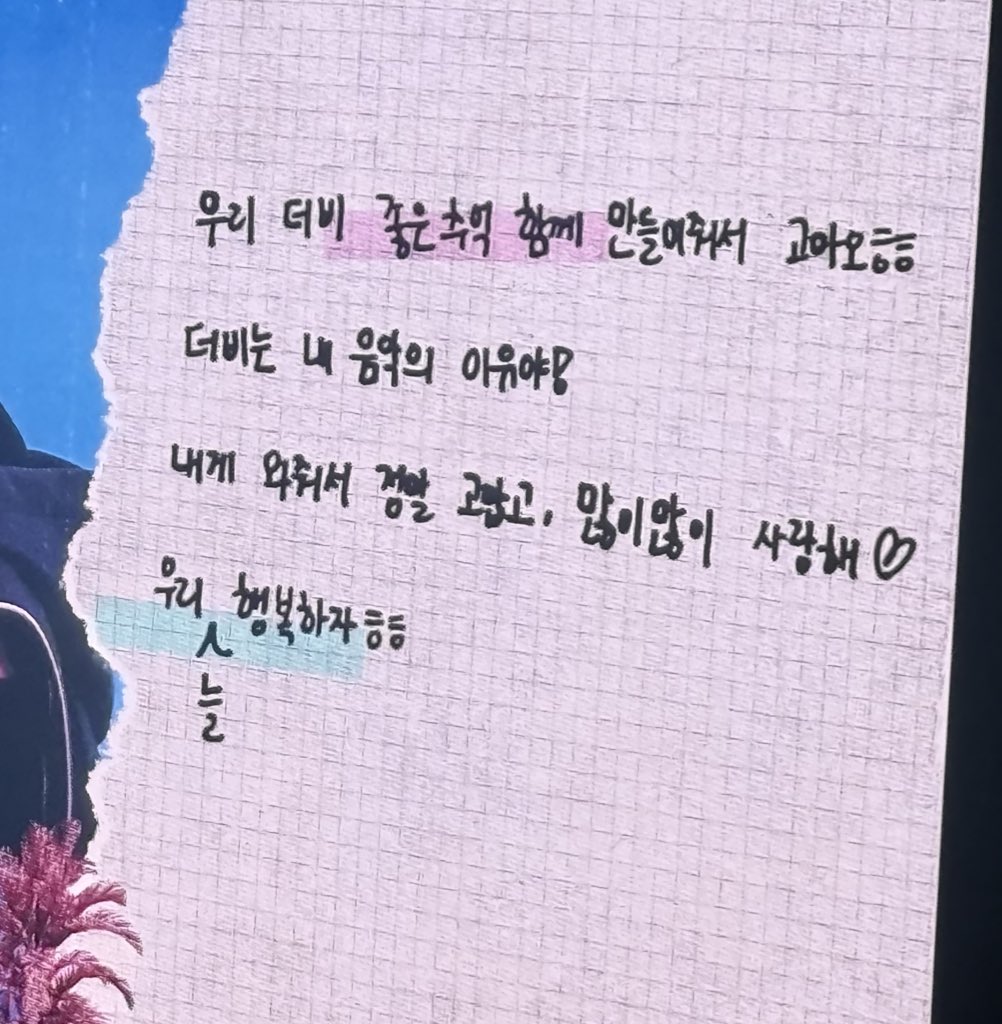 우리 더비 좋은 추억 함께 만들어줘서 고마오흥흥
더비는 내 음악의 이유야!
내게 와줘서 정말 고맙고, 많이많이 사랑해♡
우리 행복하자흥흥
늘